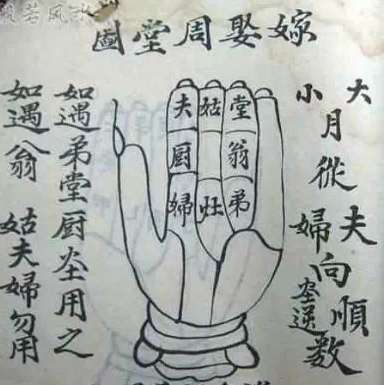 般若风水
嫁娶周堂圖
大
小
月從
夫
婦
向
順
灶逆
數
堂翁弟
姑灶
夫厨婦
如遇弟堂厨灶用之
如遇翁姑夫婦勿用